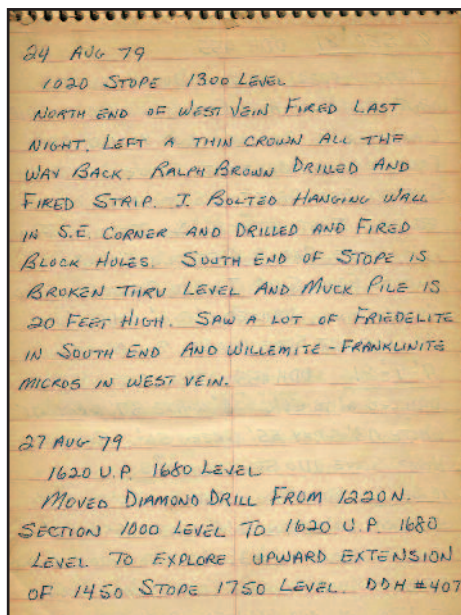 24 AUG 79
1020 STOPE 1300 LEVEL
NORTH END OF WEST VEIN FIRED LAST
NIGHT. LEFT A THIN CROWN ALL THE
WAY BACK. RALPH BROWN DRILLED AND
FIRED STRIP. I BOLTED HANGING WALL
IN S.E. CORNER AND DRILLED AND FIRED
BLOCK HOLES. SOUTH END OF STOPE IS
BROKEN THRU LEVEL AND MUCK PILE IS
20 FEET HIGH. SAW A LOT OF FRIEDELITE
IN SOUTH END AND WILLEMITE-FRANKLINITE
MICROS IN WEST VEIN.
27 AUG 79
1620 U.P. 1680 LEVEL
MOVED DIAMOND DRILL FROM 1220 N.
SECTION 1000 LEVEL TO 1620 U.P. 1680
LEVEL TO EXPLORE UPWARD EXTENSION
OF 1450 STOPE 1750 LEVEL. DDH #407